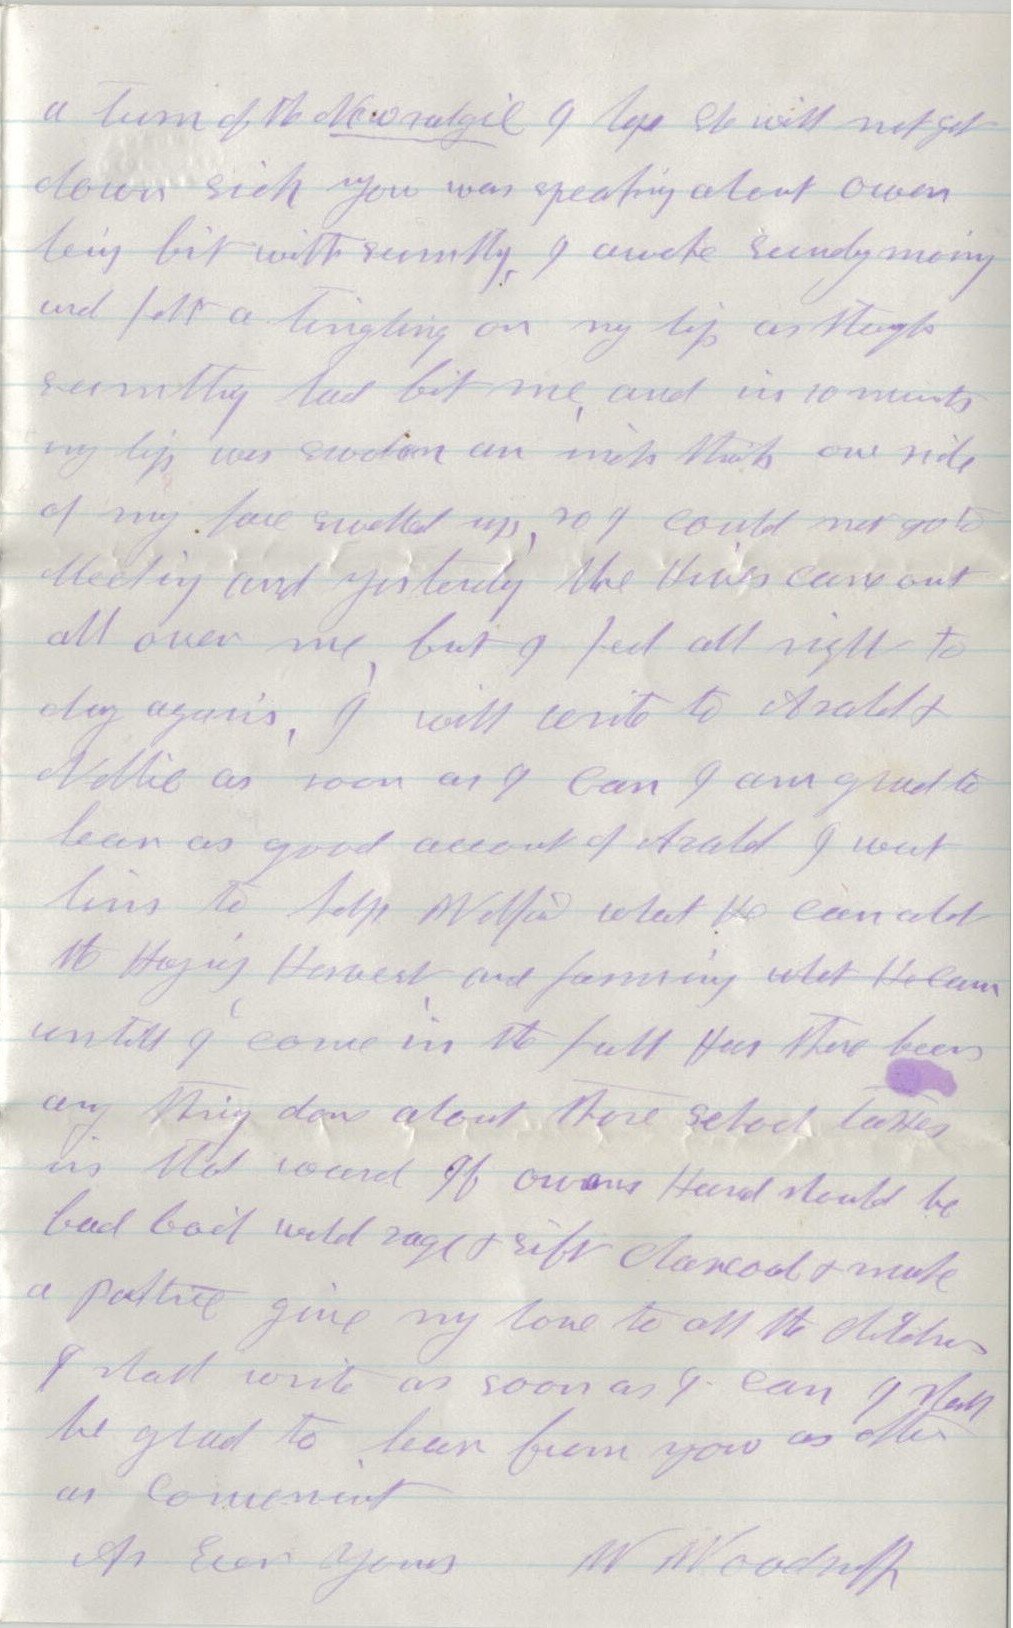 a turn of the Newralgie I hope she will not get
down sick you was speaking about Owen
being bit with sumthing, I awoke Sunday morning
and felt a tingling on my lip as though
sumthing had bit me, and in 10 minuts
my lip was swolen an inch thick one side
of my face swelled up, so I could not go to
Meeting and yesterday the Hives came out
all over me, but I feel all right to
day again, I will write to Asahel &
Nellie as soon as I can I am glad to
hear as good account of Asahel I want
him to help Wilford what He can about
the Haying Harvest and farming what He can
untill I come in the fall Has there been
any thing done about those school taxes
in that ward If Owens Hand should be
bad boil wild sage & sift charcoal & make
a poltice give my love to all the children
I shall write as soon as I can I shall
be glad to hear from you as often
as convenient
As Ever Yours W Woodruff